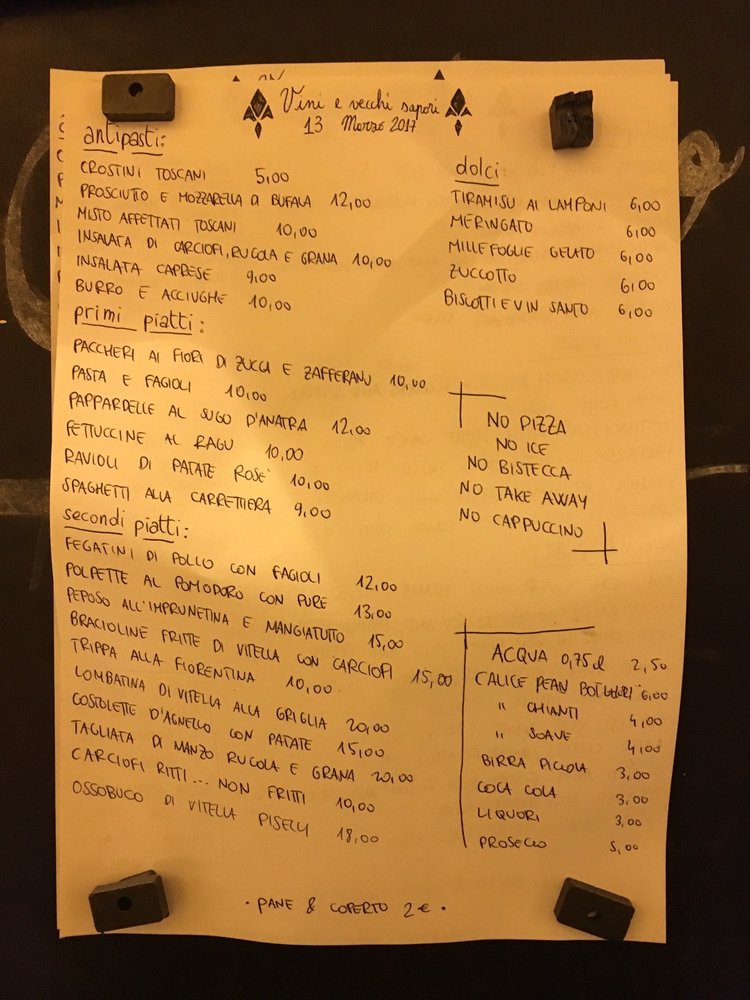 Vini e vecchi sapori
13 Marzo 2017
antipasti:
CROSTINI TOSCANI 5,00
PROSCIUTTO E MOZZARELLA DI BUFALA 12,00
MISTO AFFETTATI TOSCANI 10,00
INSALATA DI CARCIOFI, RUCOLA E GRANA 10,00
INSALATA CAPRESE 9,00
BURRO E ACCIUGHE 10,00
primi piatti:
PACCHERI AI FIORI DI ZUCCA E ZAFFERANO 10,00
PASTA E FAGIOLI 10,00
PAPPARDELLE AL SUGO D'ANATRA 12,00
FETTUCCINE AL RAGU 10,00
RAVIOLI DI PATATE ROSE' 10,00
SPAGHETTI ALLA CARRETTIERA 9,00
secondi piatti:
FEGATINI DI POLLO CON FAGIOLI 12,00
POLPETTE AL POMODORO CON PURE 13,00
PEPOSO ALL'IMPRUNETINA E MANGIATUTTO 15,00
BRACIOLINE FRITTE DI VITELLA CON CARCIOFI 15,00
TRIPPA ALLA FIORENTINA 10,00
LOMBATINA DI VITELLA ALLA GRIGLIA 20,00
COSTOLETTE D'AGNELLO CON PATATE 15,00
TAGLIATA DI MANZO RUCOLA E GRANA 20,00
CARCIOFI RITTI... NON FRITTI 10,00
OSSOBUCO DI VITELLA PISELLI 18,00
dolci:
TIRAMISU AI LAMPONI 6,00
MERINGATO 6,00
MILLEFOGLIE GELATO 6,00
ZUCCOTTO 6,00
BISCOTTI E VIN SANTO 6,00
NO PIZZA
NO ICE
NO BISTECCA
NO TAKE AWAY
NO CAPPUCCINO
ACQUA 0,75cl 2,50
CALICE 6,00
" CHIANTI 4,00
" SOAVE 4,00
BIRRA PICCOLA 3,00
COCA COLA 3,00
LIQUORI 3,00
PROSECCO 5,00
· PANE & COPERTO 2 € ·